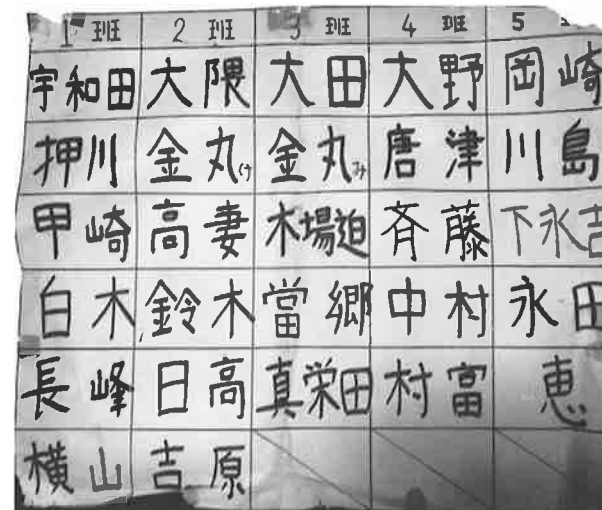 1班 2班 3班 4班 5
宇和田 大隈 大田 大野 岡崎
押川 金丸(け 金丸み 唐津 川島
甲崎 高妻 木場迫 斉藤 下永吉
白木 鈴木 當郷 中村 永田
長峰 日高 真栄田 村富 恵
横山 吉原